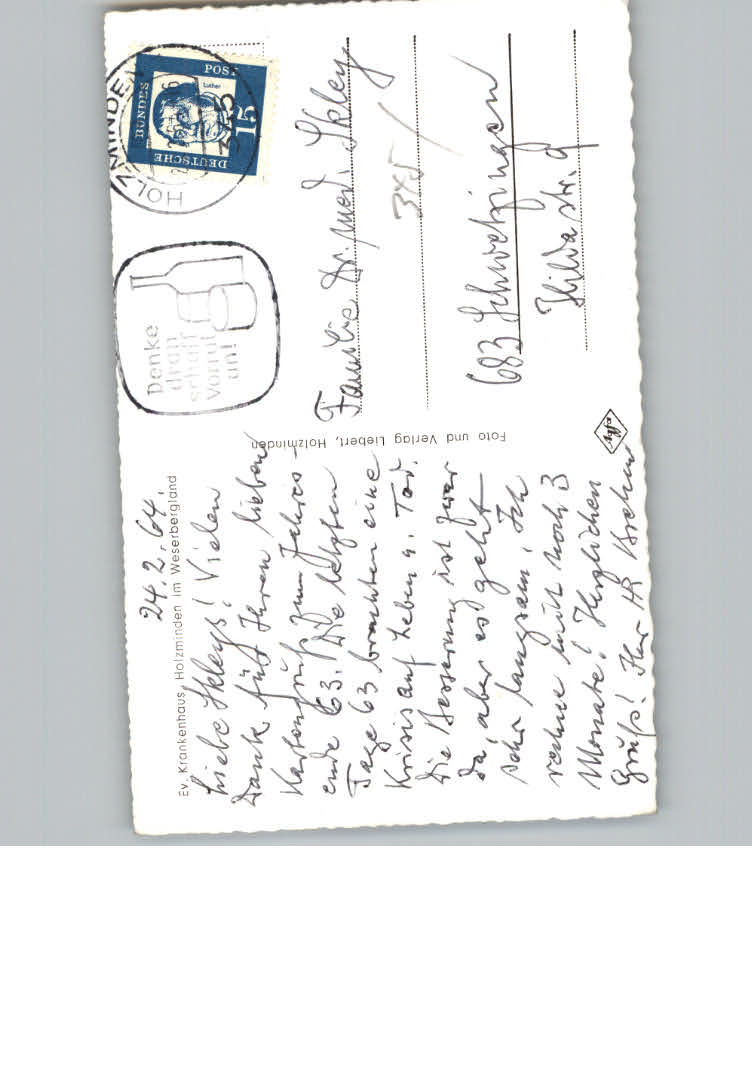 24.2.64.
Ev. Krankenhaus, Holzminden im Weserbergland
Liebe Skleys! Vielen
Dank für Ihren lieben
Kartengruß zum Jahres-
ende 63. Die letzten
Tage 63 brachten eine
Krisis auf Leben u. Tod.
Die Besserung ist zwar
da, aber es geht
sehr langsam. Ich
rechne mit noch 3
Monate! Herzlichen
Gruß! Ihr
Foto und Verlag Liebert, Holzminden
Agfa
HOLZMINDEN
DEUTSCHE BUNDESPOST
Luther
15
Denke
dran
schaff
Vorrat
an!
Familie Dr. med. Skley
345/
683 Schwetzingen
Hilda str. 9